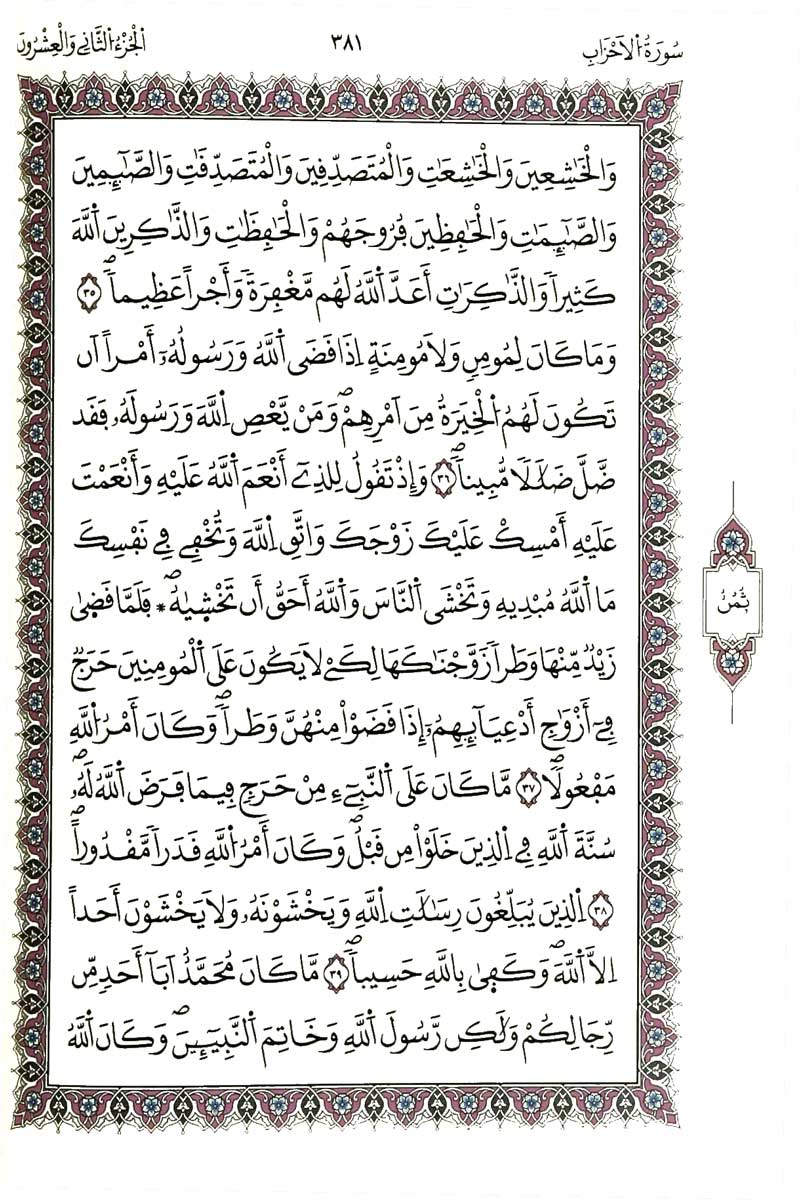 سُورَةُ الْأَحْزَابِ
٣٨١
الْجُزْءُ الثَّانِي وَالْعِشْرُونَ
وَالْخَٰشِعِينَ وَالْخَٰشِعَٰتِ وَالْمُتَصَدِّقِينَ وَالْمُتَصَدِّقَٰتِ وَالصَّٰٓئِمِينَ
وَالصَّٰٓئِمَٰتِ وَالْحَٰفِظِينَ فُرُوجَهُمْ وَالْحَٰفِظَٰتِ وَالذَّٰكِرِينَ اَللَّهَ
كَثِيراٗ وَالذَّٰكِرَٰتِ أَعَدَّ اَللَّهُ لَهُم مَّغْفِرَةٗ وَأَجْراً عَظِيماٗۖ ٣٥
وَمَا كَانَ لِمُومِنٖ وَلَا مُومِنَةٍ اِذَا قَضَى اَللَّهُ وَرَسُولُهُۥٓ أَمْراً اَن
تَكُونَ لَهُمُ اُلْخِيَرَةُ مِنَ اَمْرِهِمْۖ وَمَنْ يَّعْصِ اِللَّهَ وَرَسُولَهُۥ فَقَد
ضَّلَّ ضَلَٰلاٗ مُّبِيناٗۖ ٣٦ وَإِذْ تَقُولُ لِلذِےٓ أَنْعَمَ اَللَّهُ عَلَيْهِ وَأَنْعَمْتَ
عَلَيْهِ أَمْسِكْ عَلَيْكَ زَوْجَكَ وَاتَّقِ اِللَّهَ وَتُخْفِے فِے نَفْسِكَ
مَا اَللَّهُ مُبْدِيهِ وَتَخْشَى اَلنَّاسَ وَاللَّهُ أَحَقُّ أَن تَخْشٰىٰهُۖ * فَلَمَّا قَضٰىٰ
زَيْدٞ مِّنْهَا وَطَراٗ زَوَّجْنَٰكَهَا لِكَےْ لَا يَكُونَ عَلَى اَلْمُومِنِينَ حَرَجٞ
فِےٓ أَزْوَٰجِ أَدْعِيَآئِهِمُۥٓ إِذَا قَضَوْاْ مِنْهُنَّ وَطَراٗۖ وَكَانَ أَمْرُ اُللَّهِ
مَفْعُولاٗۖ ٣٧ مَّا كَانَ عَلَى اَلنَّبِےٓءِ مِنْ حَرَجٖ فِيمَا فَرَضَ اَللَّهُ لَهُۥۖ
سُنَّةَ اَللَّهِ فِے اِلذِينَ خَلَوْاْ مِن قَبْلُۖ وَكَانَ أَمْرُ اُللَّهِ قَدَراٗ مَّقْدُوراًۖ
٣٨ اِلذِينَ يُبَلِّغُونَ رِسَٰلَٰتِ اِللَّهِ وَيَخْشَوْنَهُۥ وَلَا يَخْشَوْنَ أَحَداً
اِلَّا اَللَّهَۖ وَكَفٰىٰ بِاللَّهِ حَسِيباٗۖ ٣٩ مَّا كَانَ مُحَمَّدٌ اَبَآ أَحَدٖ مِّن
رِّجَالِكُمْ وَلَٰكِن رَّسُولَ اَللَّهِ وَخَاتِمَ اَلنَّبِيٓـِٕينَۖ وَكَانَ اَللَّهُ
ثُمُنُ